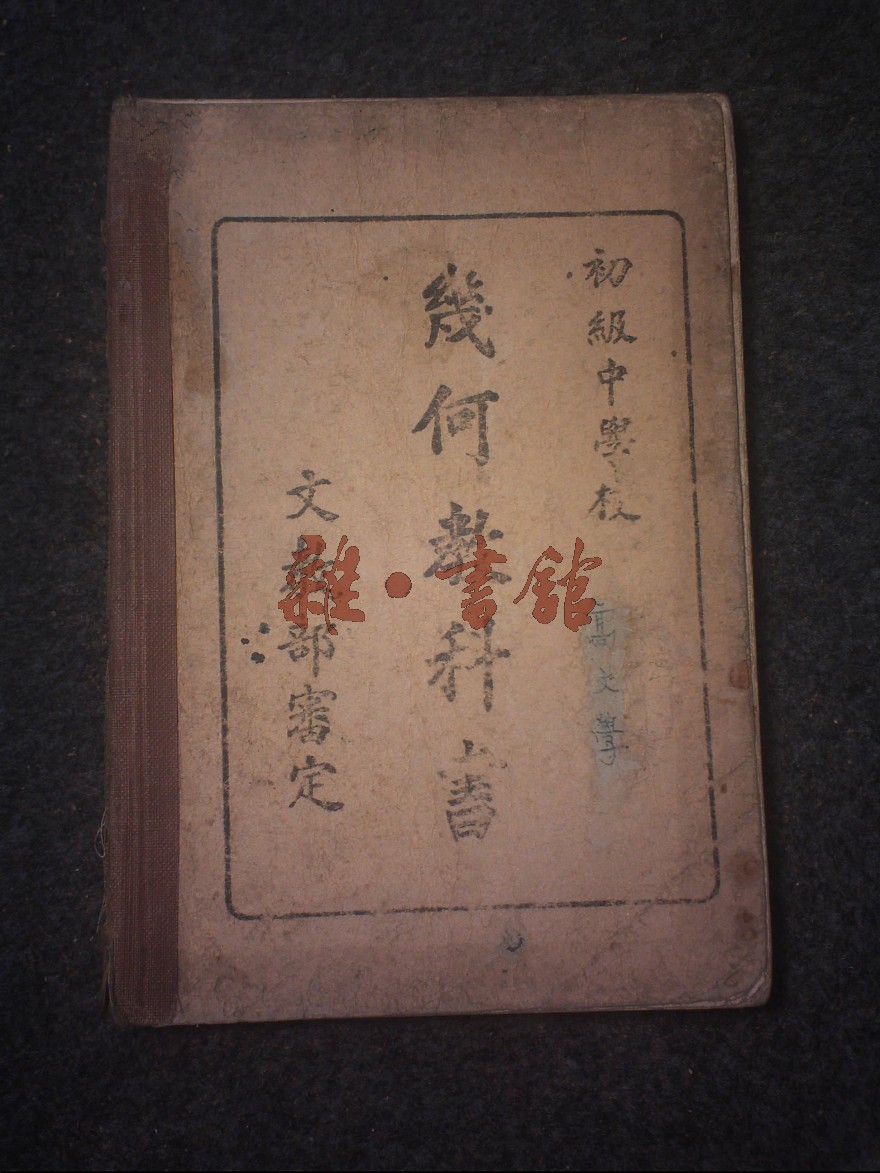 初級中學校
高文學
幾何教科書
文教部審定
雜·書館